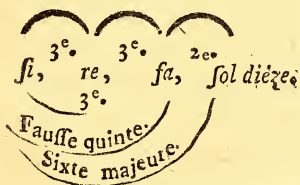 3e. 3e. 2e.
ſi, re, fa, ſol dièze.
3e.
Fauſſe quinte.
Sixte majeure.